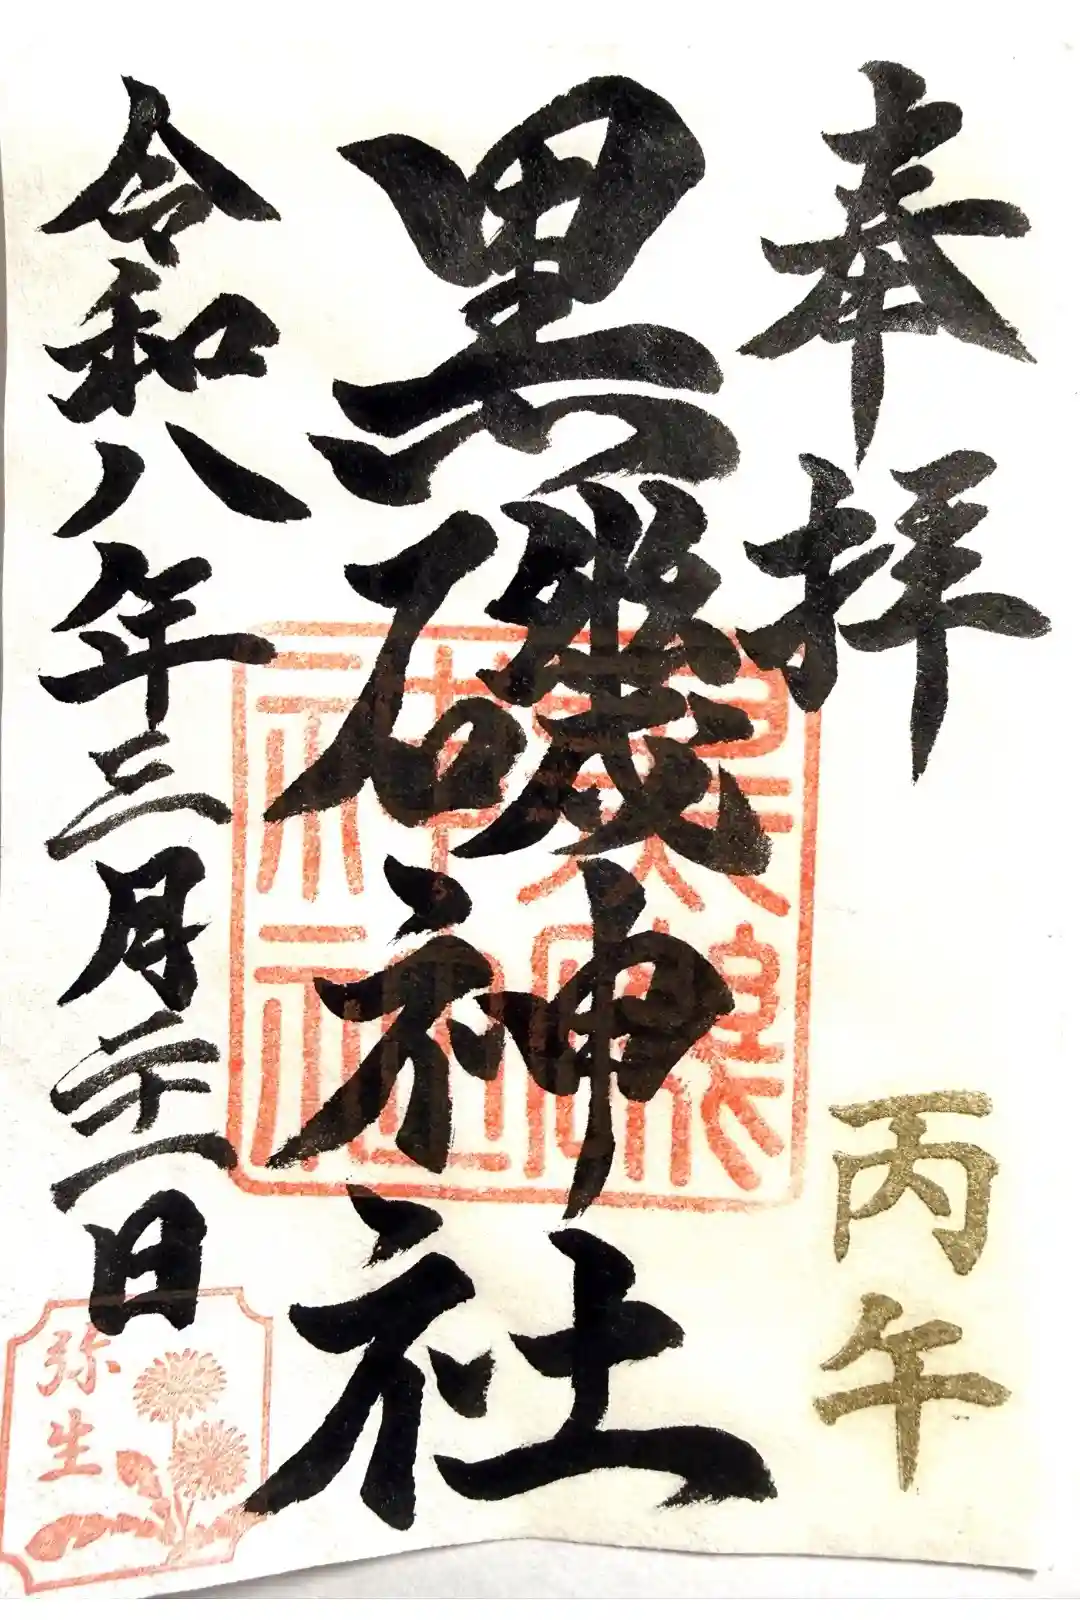 奉拝
丙午
黒磯神社
令和八年三月二十一日
弥生